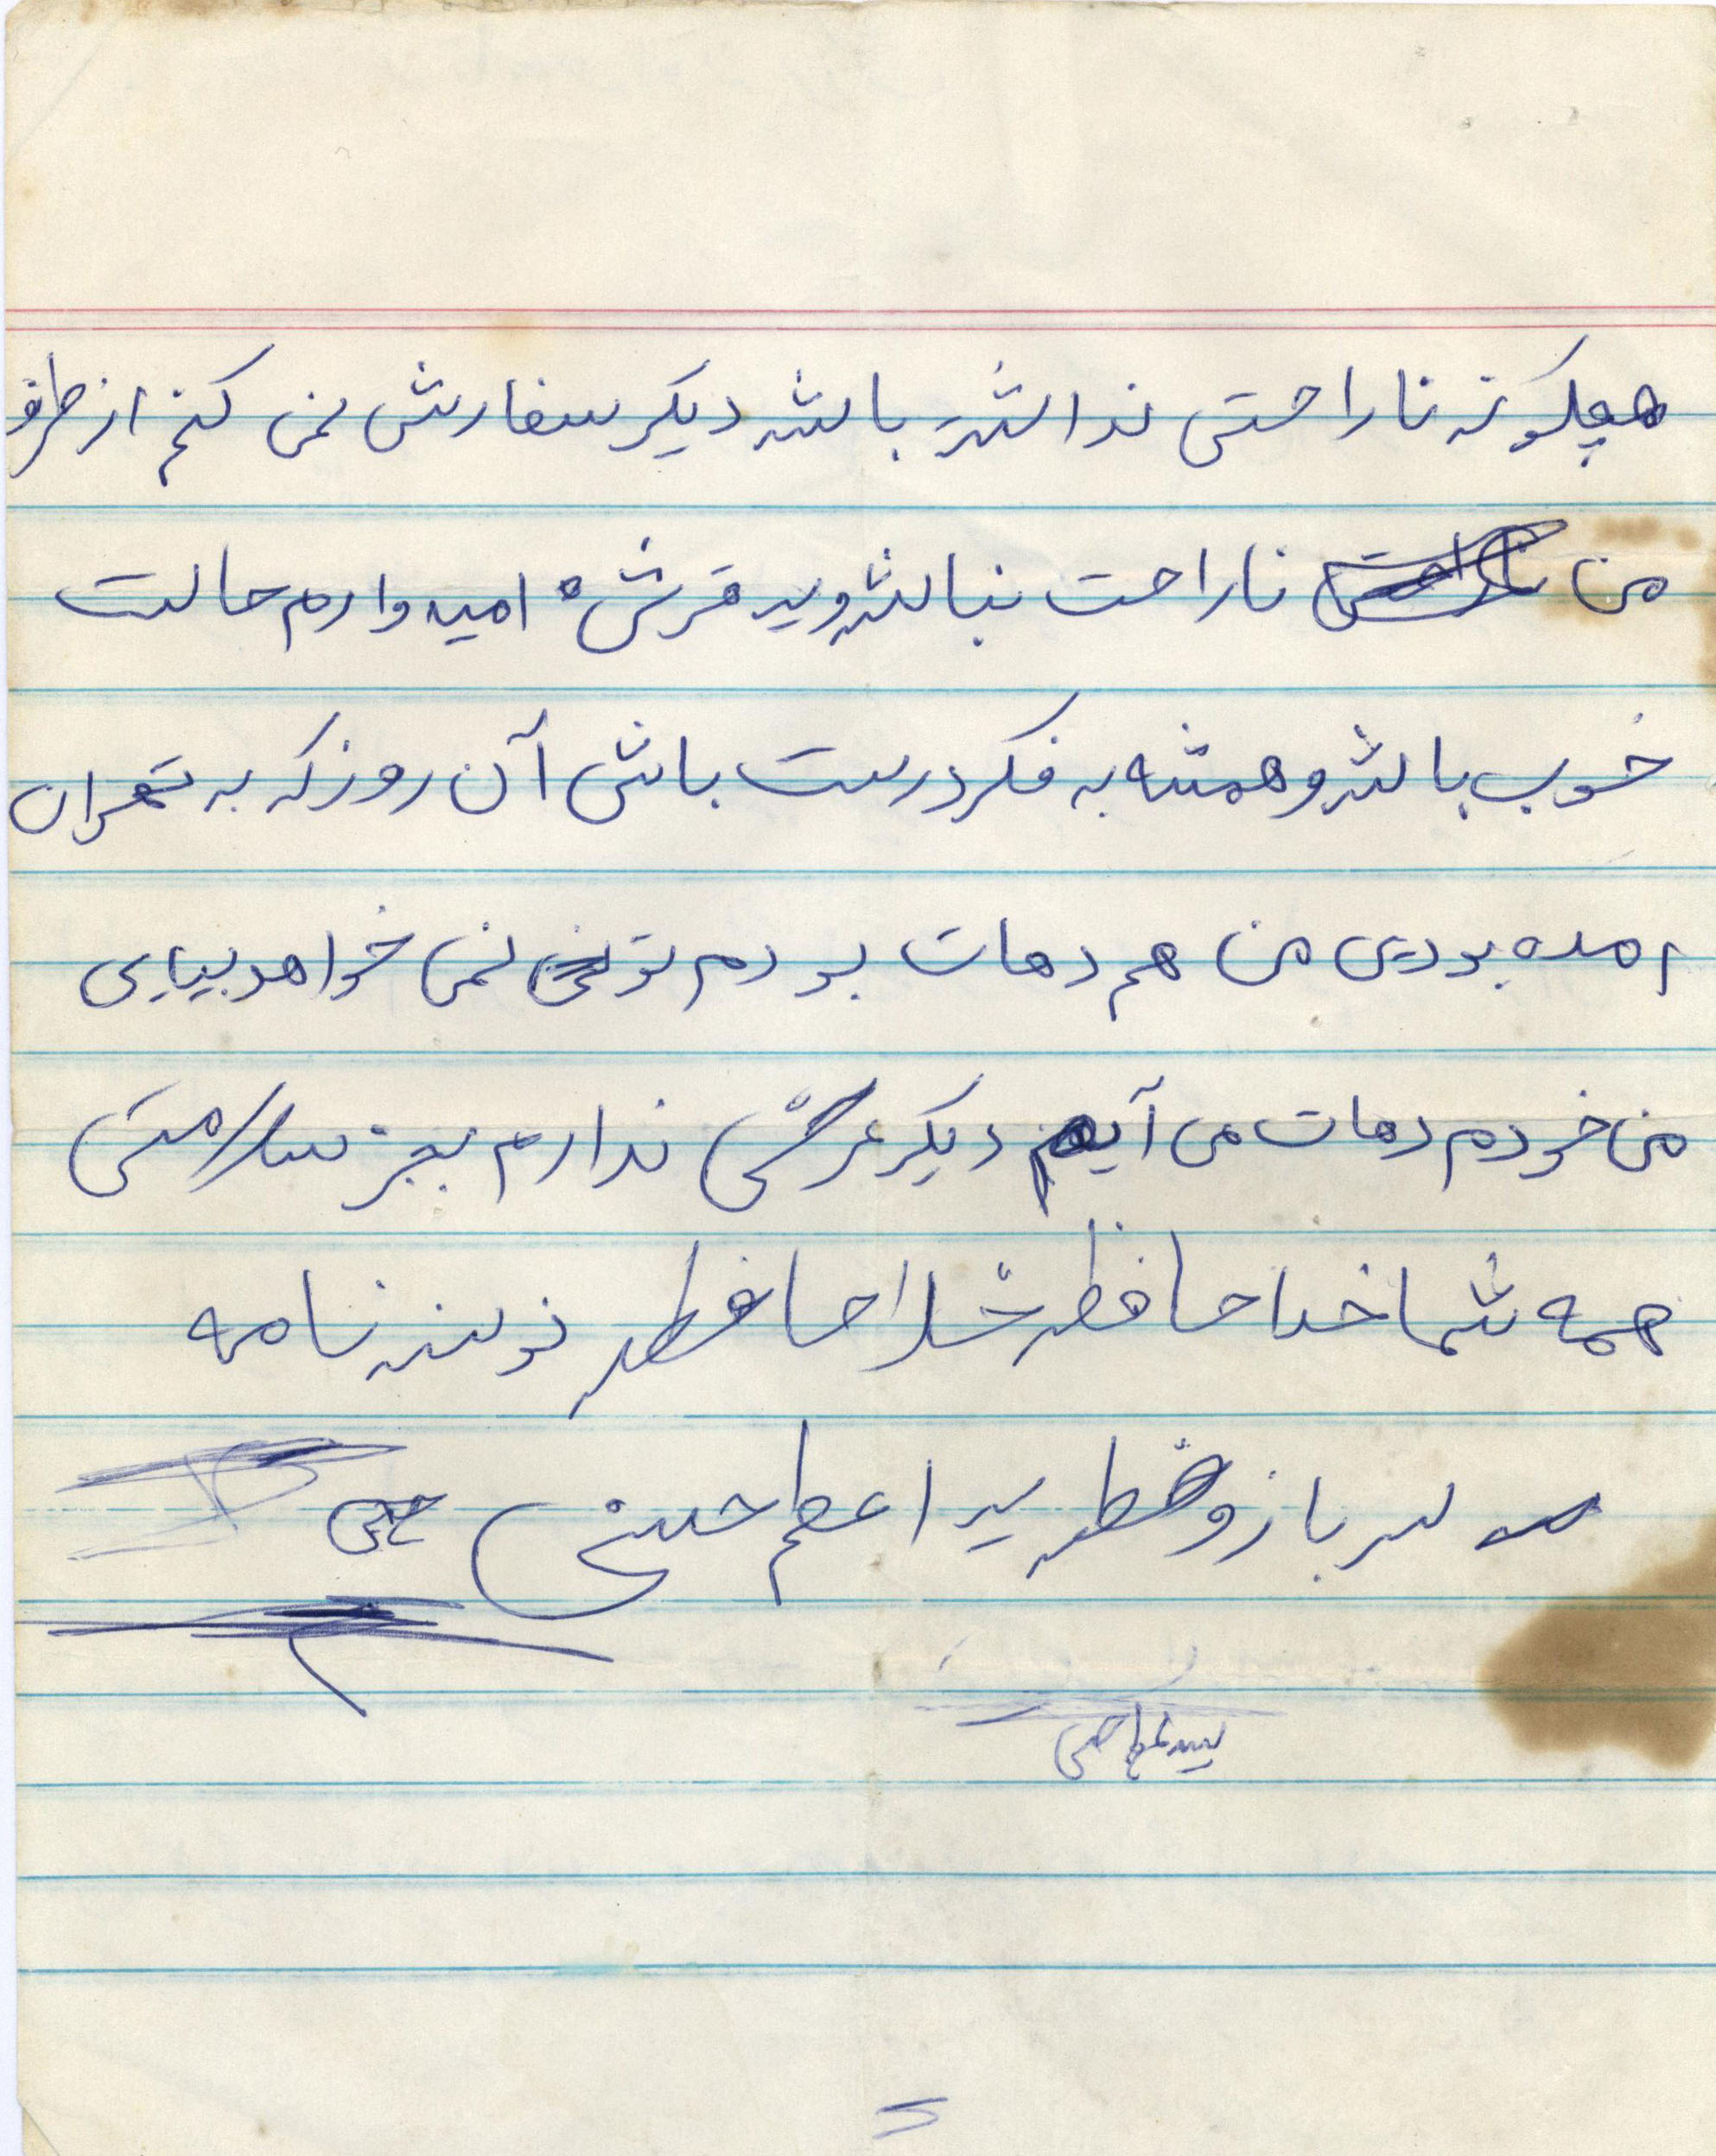 هیچگونه ناراحتی نداشته باشه دیگر سفارش نمی کنم از طرف
من ناراحت نباشه امیدوارم حالت
خوب باشه و همشه به فکر درست باش آن روز که به تهران
امده بودی من هم دهات بودم تو نمی خواهد بیایی
من خودم دهات می آیم دیگر عرضی ندارم بجز سلامتی
همه شما خدا حافظ خدا حافظ نویسنده نامه
سرباز وظیفه سید اعظم حسینی